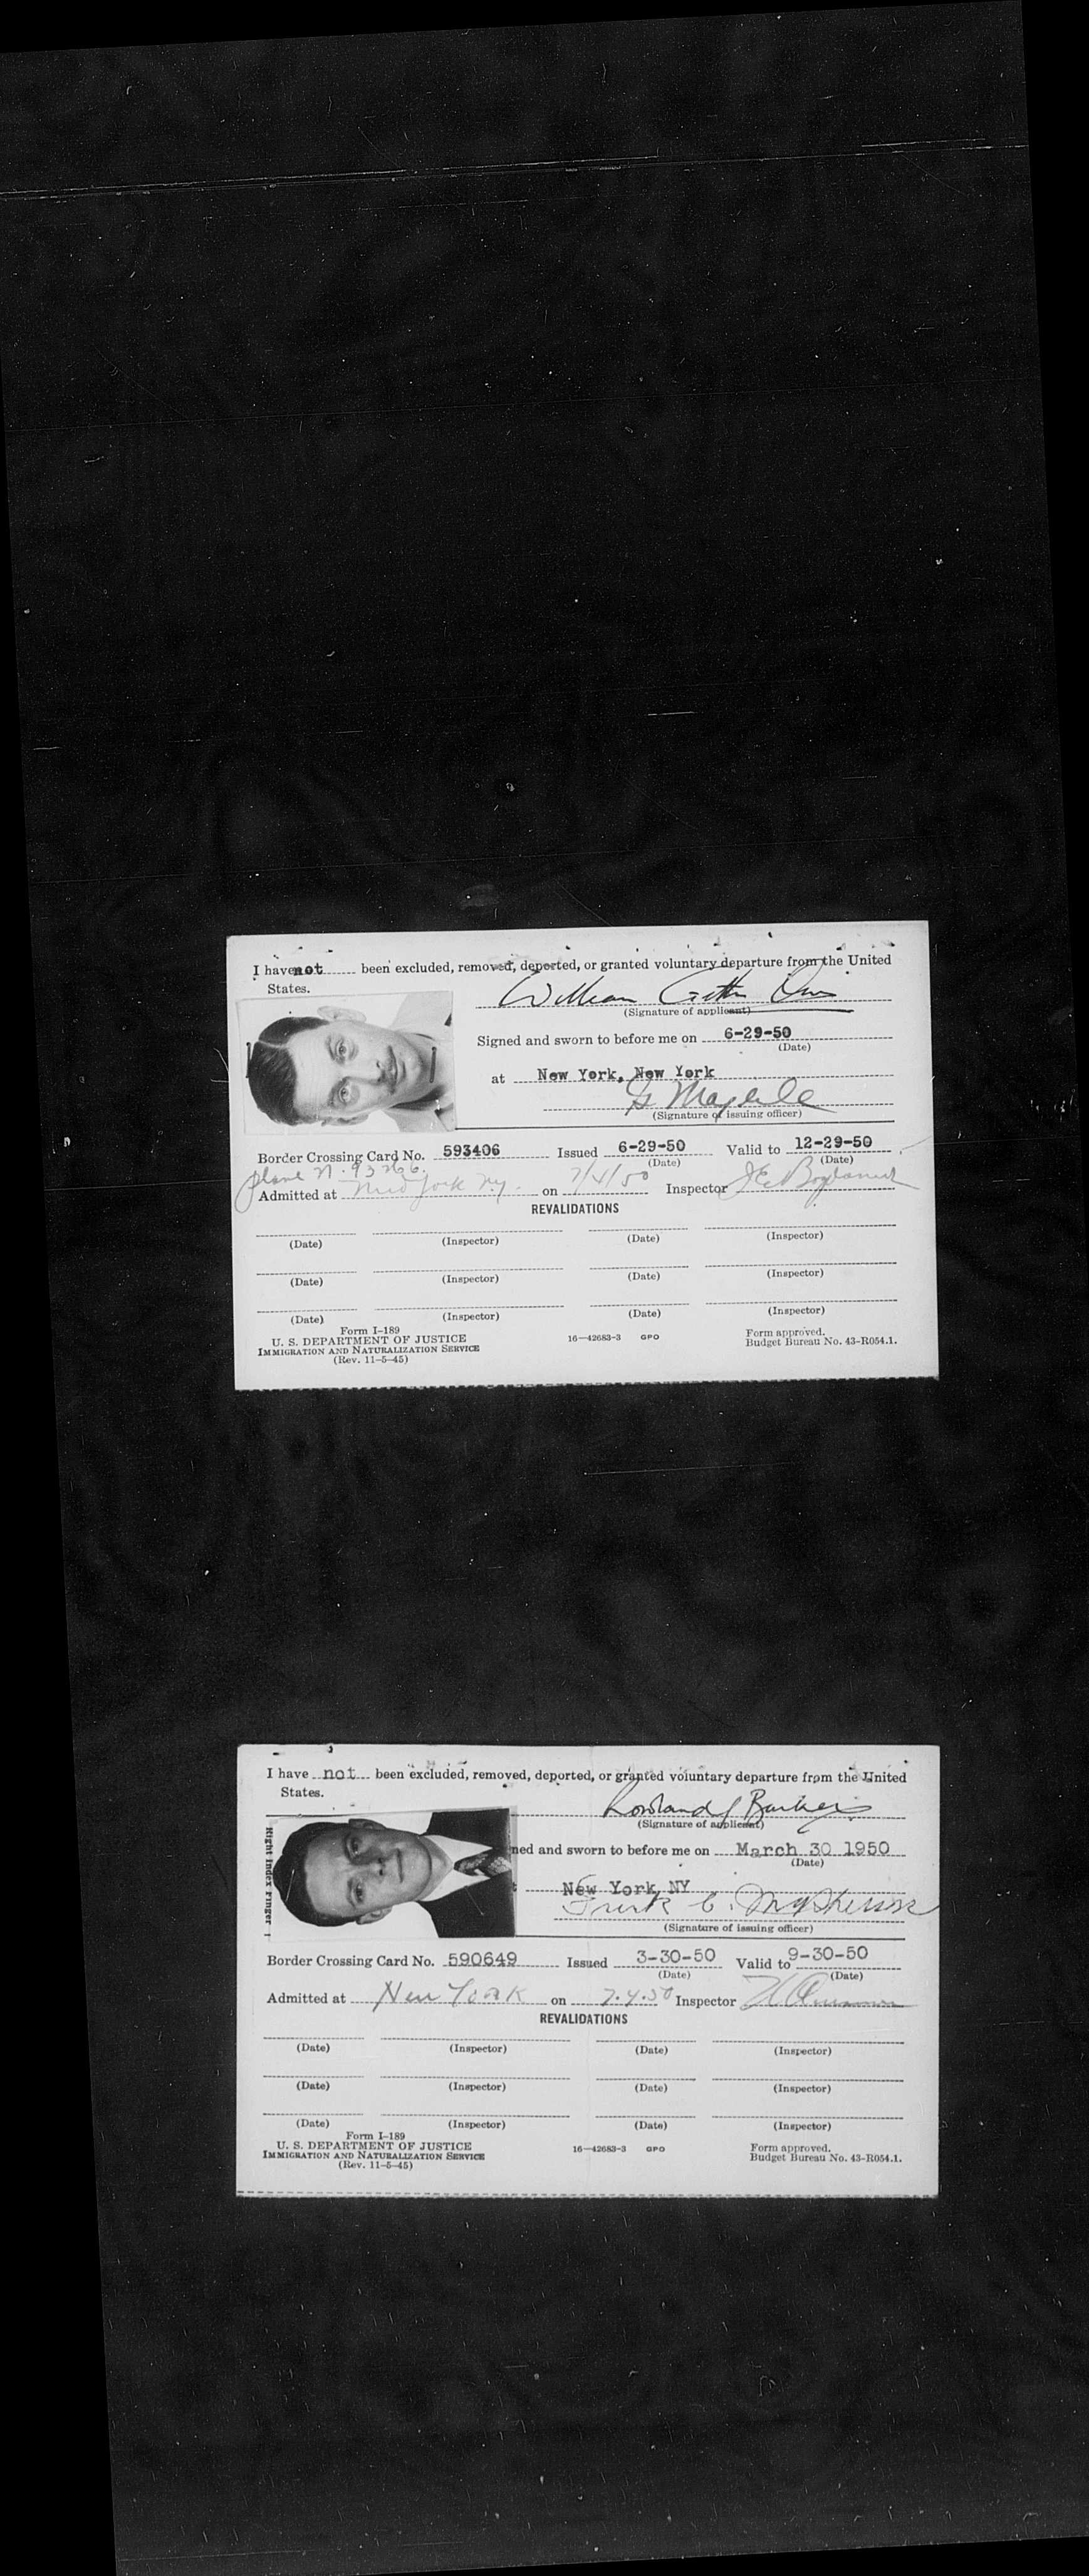 I have not been excluded, removed, deported, or granted voluntary departure from the United
States.
William
(Signature of applicant)
Signed and sworn to before me on 6-29-50
(Date)
at New York, New York
(Signature of issuing officer)
Border Crossing Card No. 593406 Issued 6-29-50 Valid to 12-29-50
(Date) (Date)
Plane N. 93266.
Admitted at New York NY. on 7/4/50 Inspector
REVALIDATIONS
(Date) (Inspector) (Date) (Inspector)
(Date) (Inspector) (Date) (Inspector)
(Date) (Inspector) (Date) (Inspector)
Form I-189
U. S. DEPARTMENT OF JUSTICE 16—42683-3 GPO Form approved.
IMMIGRATION AND NATURALIZATION SERVICE Budget Bureau No. 43-R054.1.
(Rev. 11-5-45)
I have not been excluded, removed, deported, or granted voluntary departure from the United
States.
Rowland Barker
(Signature of applicant)
Right Index Finger
ned and sworn to before me on March 30 1950
(Date)
t New York, NY
(Signature of issuing officer)
Border Crossing Card No. 590649 Issued 3-30-50 Valid to 9-30-50
(Date) (Date)
Admitted at New York on 7.4.50 Inspector
REVALIDATIONS
(Date) (Inspector) (Date) (Inspector)
(Date) (Inspector) (Date) (Inspector)
(Date) (Inspector) (Date) (Inspector)
Form I-189
U. S. DEPARTMENT OF JUSTICE 16—42683-3 GPO Form approved.
IMMIGRATION AND NATURALIZATION SERVICE Budget Bureau No. 43-R054.1.
(Rev. 11-5-45)